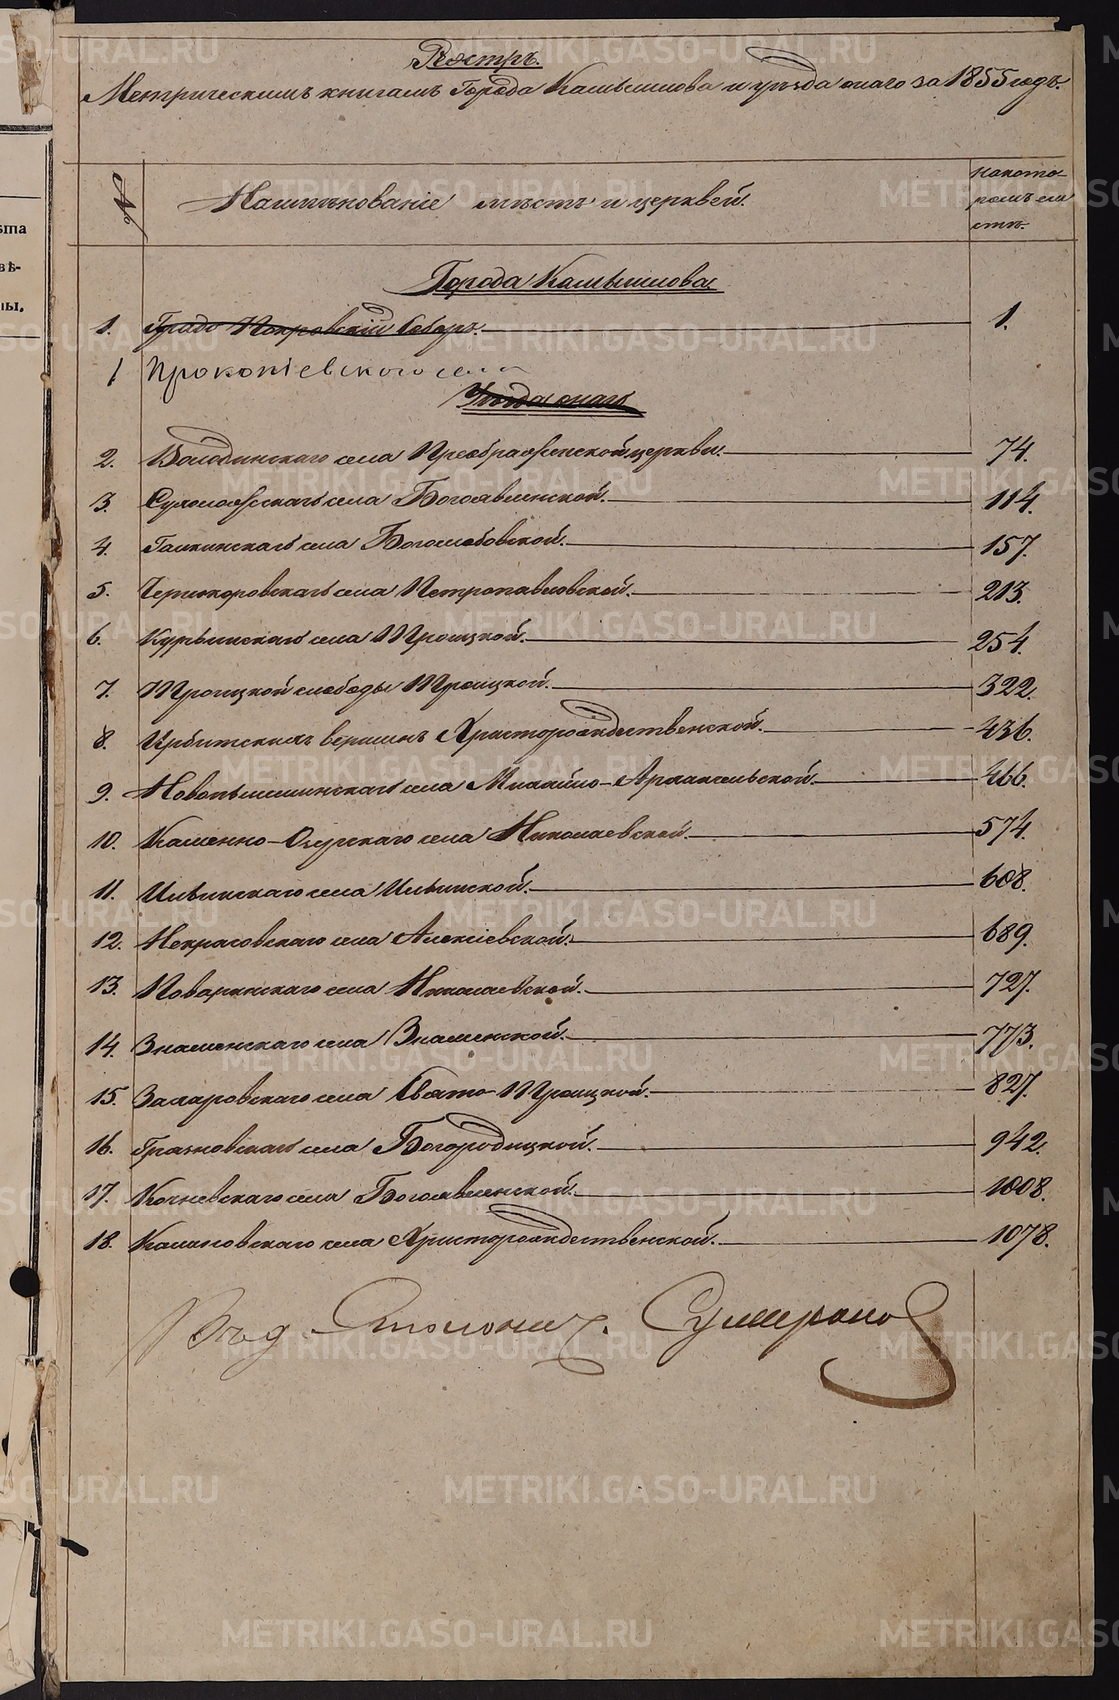 Реэстръ.
Метрическимъ книгамъ Города Камышлова и уѣзда онаго за 1855 годъ.
№
Наимѣнованіе мѣстъ и церквей.
на кото-
ромъ ли
стѣ.
Города Камышлова
1. Градо Покровскій Соборъ. 1.
1 Прокопіевского села
Уѣзда онаго
2. Володинскаго села Преображенской церкви. 74.
3. Сухоложскаго села Богоявленской. 114.
4. Галкинскаго села Богословской. 157.
5. Чернокоровскаго села Петропавловской. 213.
6. Курьинскаго села Троицкой. 254.
7. Троицкой слободы Троицкой. 322.
8. Ирбитскихъ вершинъ Христорождественской. 436.
9. Новопышминскаго села Михайло-Архангельской. 466.
10. Каменно-Озерскаго села Николаевской. 574.
11. Ильинскаго села Ильинской. 608.
12. Некрасовскаго села Алексіевской. 689.
13. Поваренскаго села Николаевской. 727.
14. Знаменскаго села Знаменской. 773.
15. Захаровскаго села Свято-Троицкой. 827.
16. Грязновскаго села Богородицкой. 942.
17. Кочневскаго села Богоявленской. 1008.
18. Калиновскаго села Христорождественской. 1078.
ѣта
вѣ-
ны.
METRIKI.GASO-URAL.RU